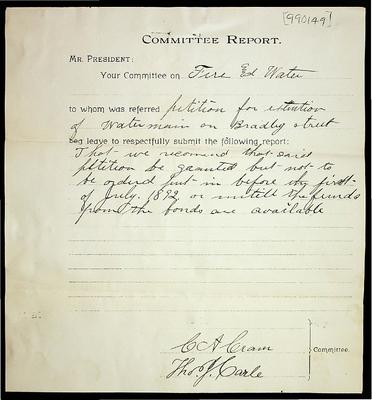 [990149]
COMMITTEE REPORT.
MR. PRESIDENT:
Your Committee on Fire Ed Water
to whom was referred petition for extention
of Watermain on Bradley street
beg leave to respectfully submit the following report:
That we recomend that said
petition be granted but not to
be ordered put in before the first
of July. 1892 or untill the funds
from the bonds are available
C A Cram
Thos. J. Carle
Committee.